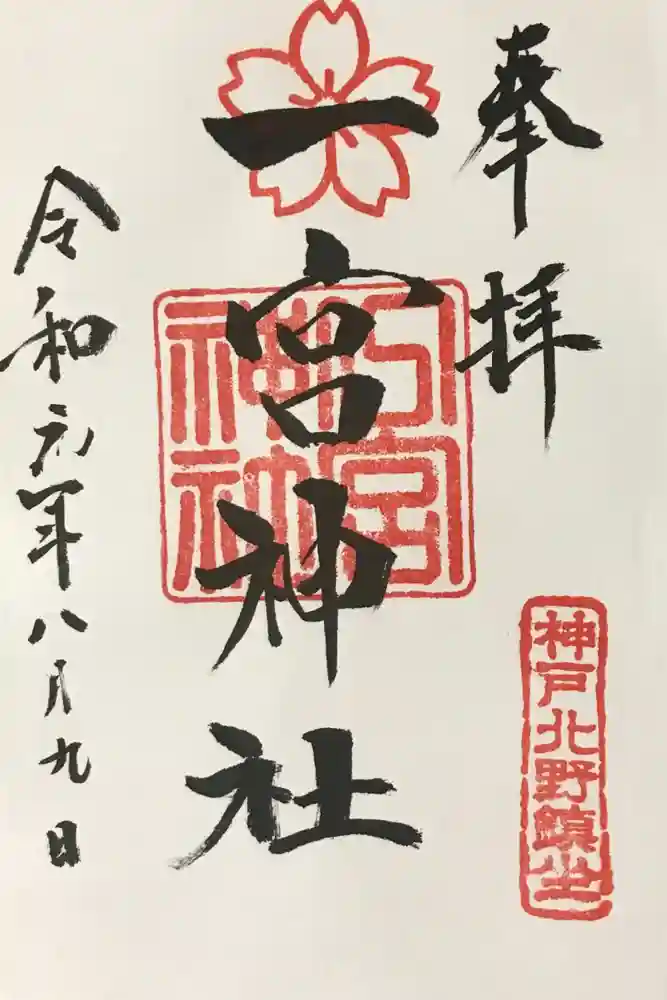 奉拝
神戸北野鎮坐
一宮神社
令和元年八月九日